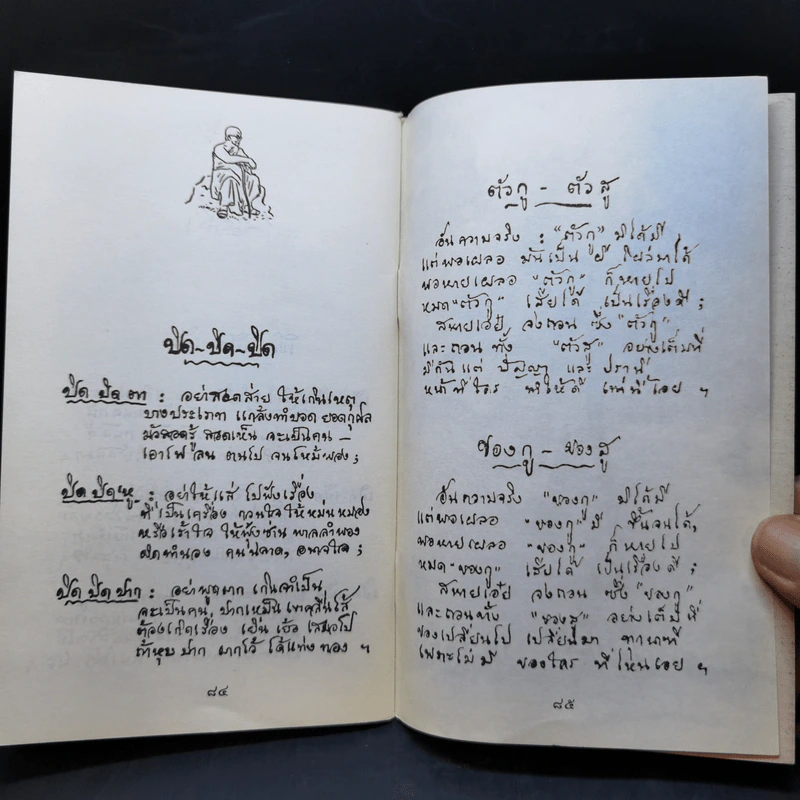 ปิด-ปิด-ปิด
ปิด ปิด ตา : อย่าสอดส่าย ให้เกินเหตุ
บางประเภท แกล้งทำบอด ยอดกุศล
มัวสอดรู้ สอดเห็น จะเป็นคน –
เอาไฟลน ตนไป จนไหม้พอง ;
ปิด ปิด หู : อย่าให้แส่ ไปฟังเรื่อง
ที่เป็นเครื่อง กวนใจ ให้หม่นหมอง
หรือเร้าใจ ให้ฟุ้งซ่าน พาลลำพอง
ผิดทำนอง คนฉลาด, อนาถใจ ;
ปิด ปิด ปาก : อย่าพูดมาก เกินจำเป็น
จะเป็นคน, ปากเหม็น เขาคลื่นไส้
ต้องเกิดเรื่อง เยิ่นเย้อ เสมอไป
ถ้าหุบปาก มากไว้ ได้แท่งทอง ฯ
๘๔
ตัวกู – ตัวสู
อันความจริง : "ตัวกู" มิได้มี
แต่พอเผลอ มันเป็นผี โผล่มาได้
พอหายเผลอ "ตัวกู" ก็หายไป
หมด "ตัวกู" เสียได้ เป็นเรื่องดี ;
สหายเอ๋ย จงถอน ซึ่ง "ตัวกู"
และถอนทั้ง "ตัวสู" อย่างเต็มที่
มีกันแต่ ปัญญา และ ปรานี
หน้าที่ใคร ทำให้ดี เท่านี้เอย ฯ
ของกู – ของสู
อันความจริง "ของกู" มิได้มี
แต่พอเผลอ "ของกู" มี ขึ้นจนได้,
พอหายเผลอ "ของกู" ก็หายไป
หมด "ของกู" เสียได้ เป็นเรื่องดี ;
สหายเอ๋ย จงถอน ซึ่ง "ของกู"
และถอนทั้ง "ของสู" อย่างเต็มที่
ของเปลี่ยนไป เปลี่ยนมา
เพราะไม่มี ของใคร ที่ไหนเอย ฯ
๘๕